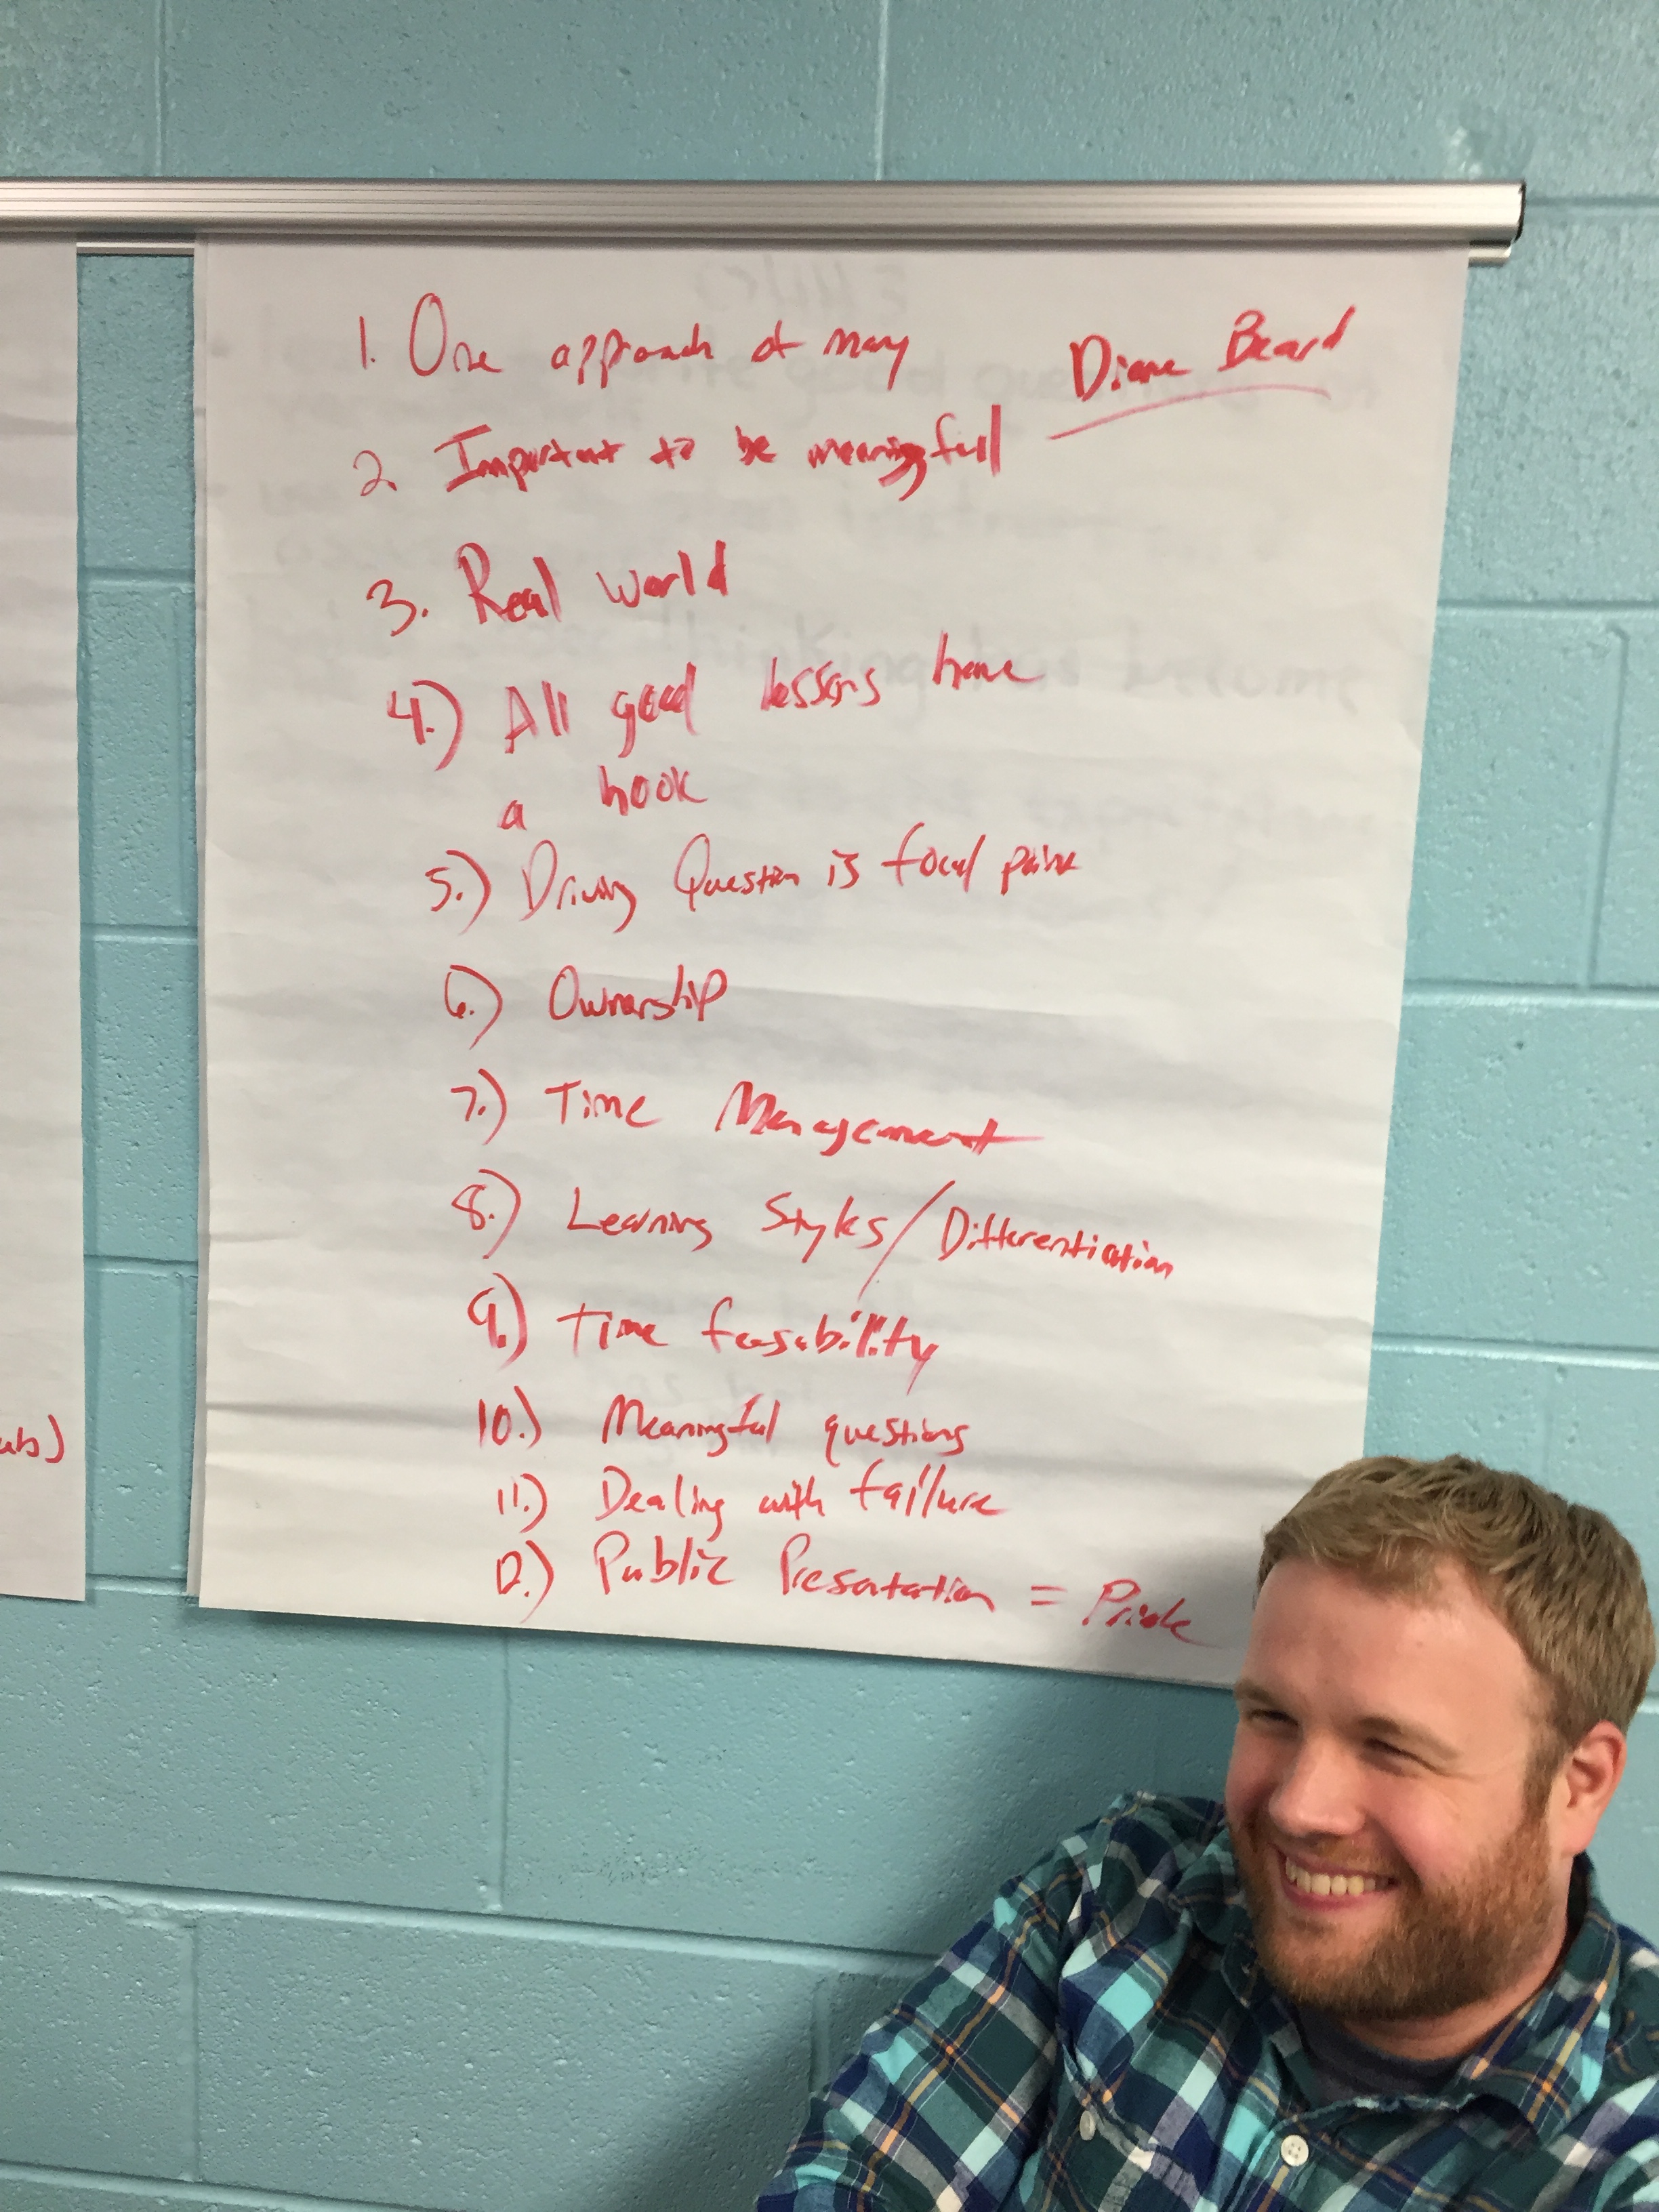 1. One approach of many
Diane Beard
2. Important to be meaningful
3. Real world
4.) All good lessons have
a hook
5.) Driving Question is focal point
6.) Ownership
7.) Time Management
8.) Learning Styles/Differentiation
9.) Time feasability
10.) Meaningful questions
11.) Dealing with failure
12.) Public Presentation = Pride